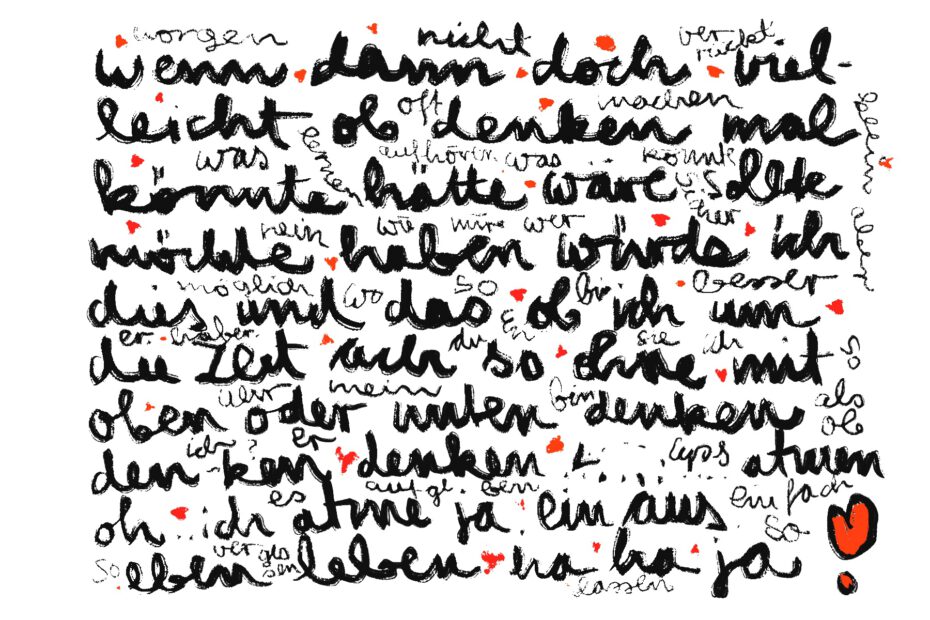 morgen nicht ver rückt
wenn dann doch viel-
oft machen
leicht ob denken mal
was lernen aufhören was könnte
könnte hätte wäre sollte
nein wie wäre wer aber
möchte haben würde ich
möglich wo so bin besser
dies und das ob ich um
er haber du sie ich so
die Zeit ach so ohne mit
wer mein bin als ob
oben oder unten denken
ich? er ups
den-ken denken atmen
es aufge ben einfach
oh ich atme ja ein aus
so ver ges sen so
eben leben na ha ja
lassen